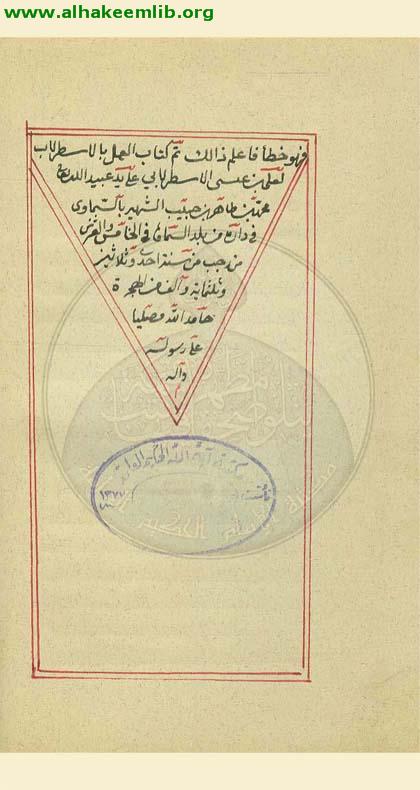 www.alhakeemlib.org
فهو خطأ فاعلم ذالك تم كتاب العمل بالاسطرلاب
لعلي بن عيسى الاسطرلابي على يد عبيد الله
محمد بن طاهر بن حبيب الشهير بالسماوي
في داره من بلد السماوة في الخامس والعشرين
من رجب من سنة احدى وثلاثين
وثلثماية والف من الهجرة
حامد الله مصليا
على رسوله
واله
م
مكتبة آية الله الحكيم العامة
١٣٧٧